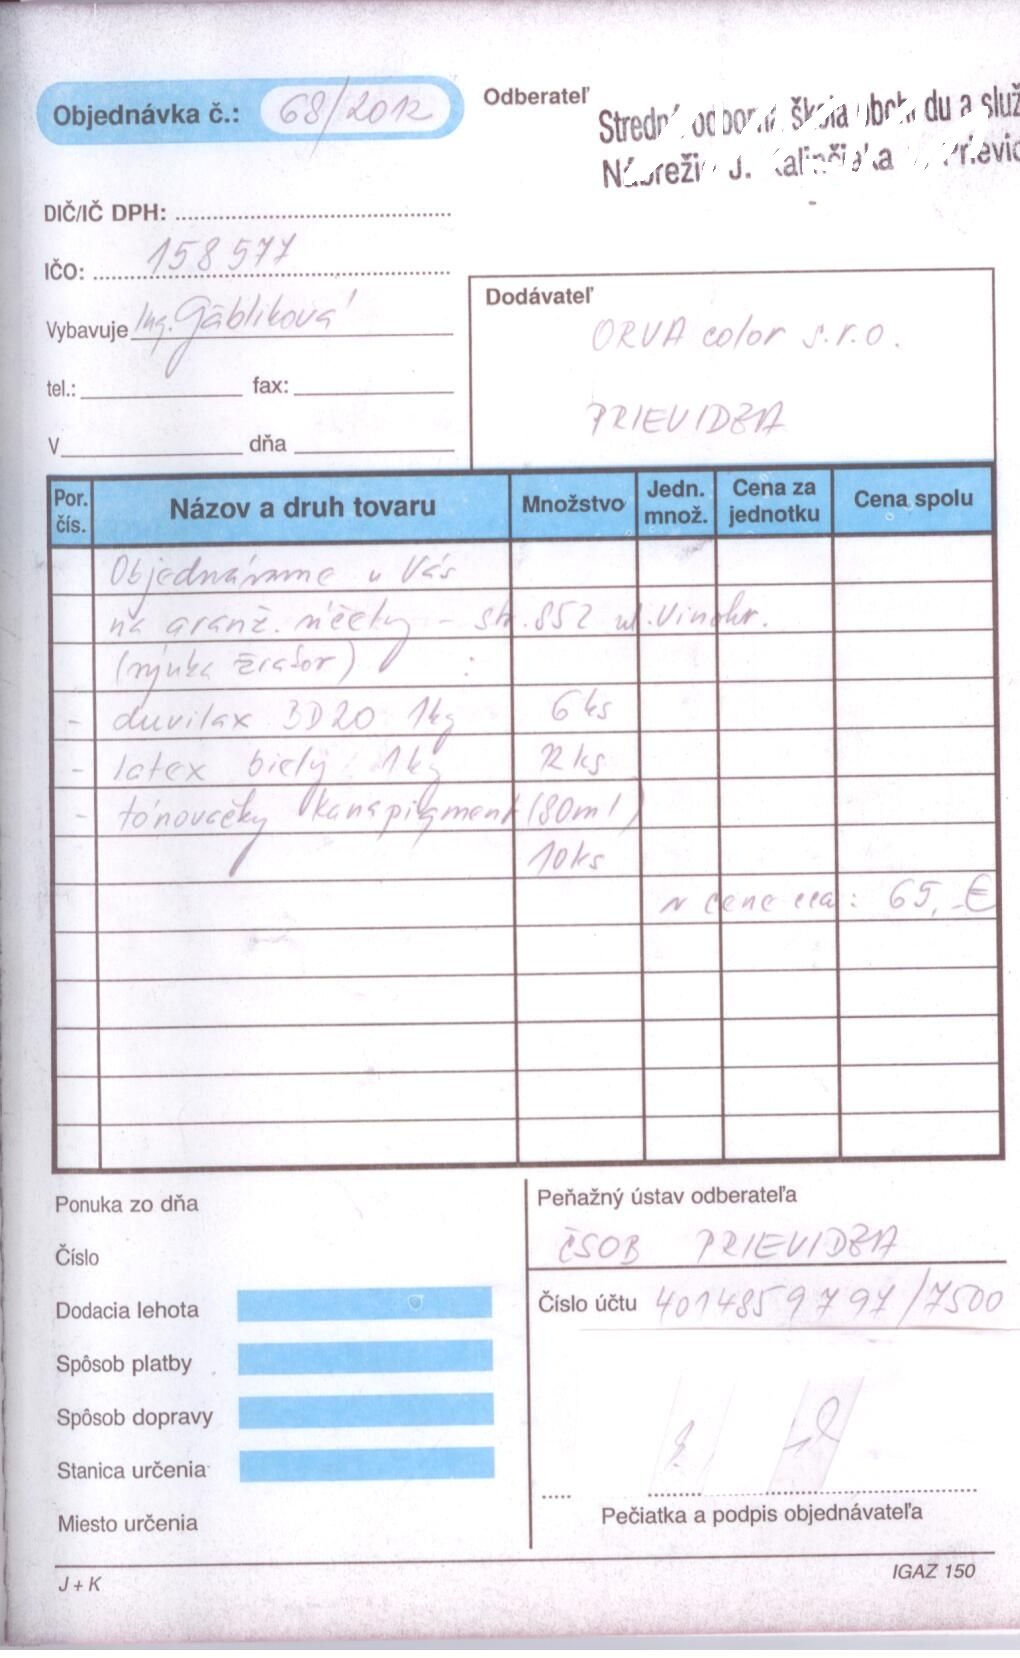 Objednávka č.: 68/2012
Odberateľ
Stredná odborná škola obchodu a služ
Nábrežie J. Kalinčiaka Prievid
DIČ/IČ DPH:
IČO: 158577
Vybavuje Ing. Gábliková
tel.: fax:
V dňa
Dodávateľ
ORVA color s.r.o.
PRIEVIDZA
Por. čís. Názov a druh tovaru Množstvo Jedn. množ. Cena za jednotku Cena spolu
Objednávame u Vás
na aranž. účely - str. 852 ul. Vinohr.
(výuka žiakov) :
- duvilax BD20 1kg 6 ks
- latex biely 1kg 12 ks
- tónovačky (80ml)
10 ks
v cene cca: 65,-€
Ponuka zo dňa
Číslo
Dodacia lehota
Spôsob platby
Spôsob dopravy
Stanica určenia
Miesto určenia
Peňažný ústav odberateľa
ČSOB PRIEVIDZA
Číslo účtu 4014859797/7500
Pečiatka a podpis objednávateľa
J + K
IGAZ 150